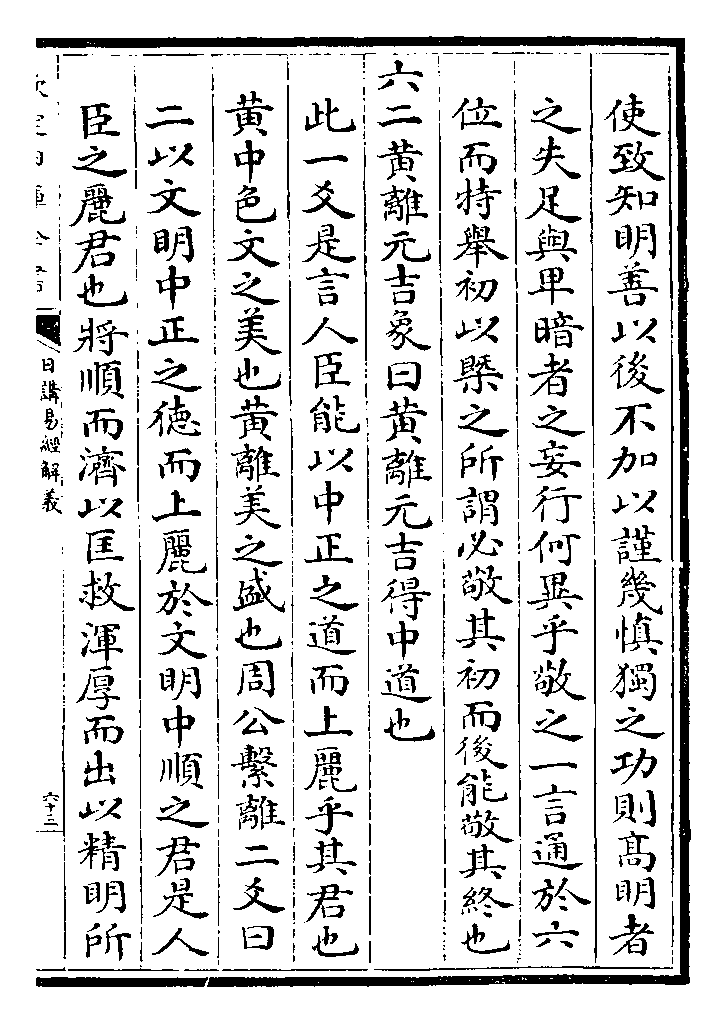 使致知明善以後不加以謹幾慎獨之功則髙明者
之失足與卑暗者之妄行何異乎敬之一言通於六
位而特舉初以槩之所謂必敬其初而後能敬其終也
六二黄離元吉象曰黄離元吉得中道也
此一爻是言人臣能以中正之道而上麗乎其君也
黄中色文之美也黄離美之盛也周公繫離二爻曰
二以文明中正之德而上麗於文明中順之君是人
臣之麗君也將順而濟以匡救渾厚而出以精明所
日講易經解義
六十三